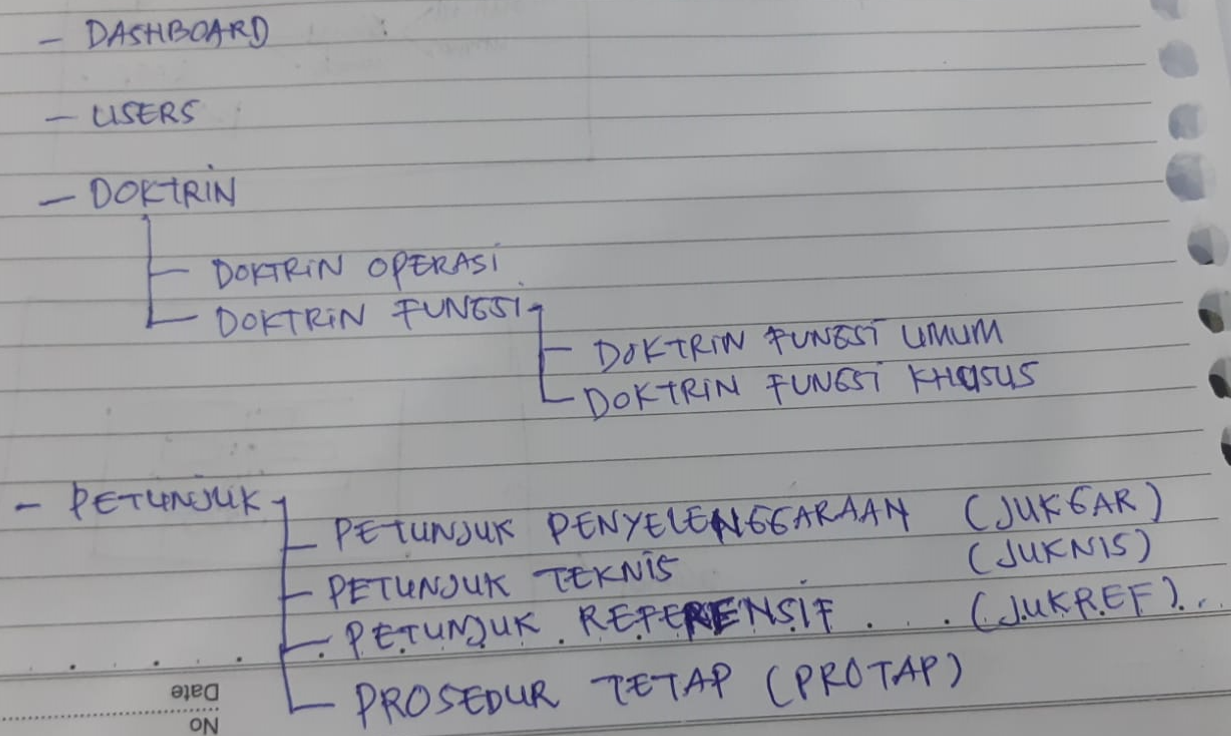 - DASHBOARD
- USERS
- DOKTRIN
DOKTRIN OPERASI
DOKTRIN FUNGSI
DOKTRIN FUNGSI UMUM
DOKTRIN FUNGSI KHUSUS
- PETUNJUK
PETUNJUK PENYELENGGARAAN (JUKGAR)
PETUNJUK TEKNIS (JUKNIS)
PETUNJUK REFERENSIF (JUKREF)
PROSEDUR TETAP (PROTAP)
Date
No